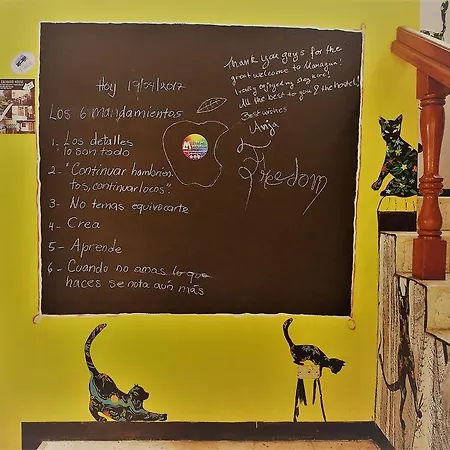 Hoy 19/09/2017
Los 6 mandamientos
1. Los detalles
lo son todo
2- "Continuar hambrien-
tos, continuar locos".
3- No temas equivocarte
4- Crea
5- Aprende
6- Cuando no amas lo que
haces se nota aún más
Thank you guys for the
great welcome to Managua!
I really enjoyed my stay here!
All the best to you & the hostel!
Best wishes
Freedom